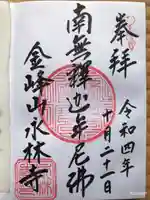 奉拝
令和四年
十月二十一日
南無釋迦牟尼佛
金峰山永林寺